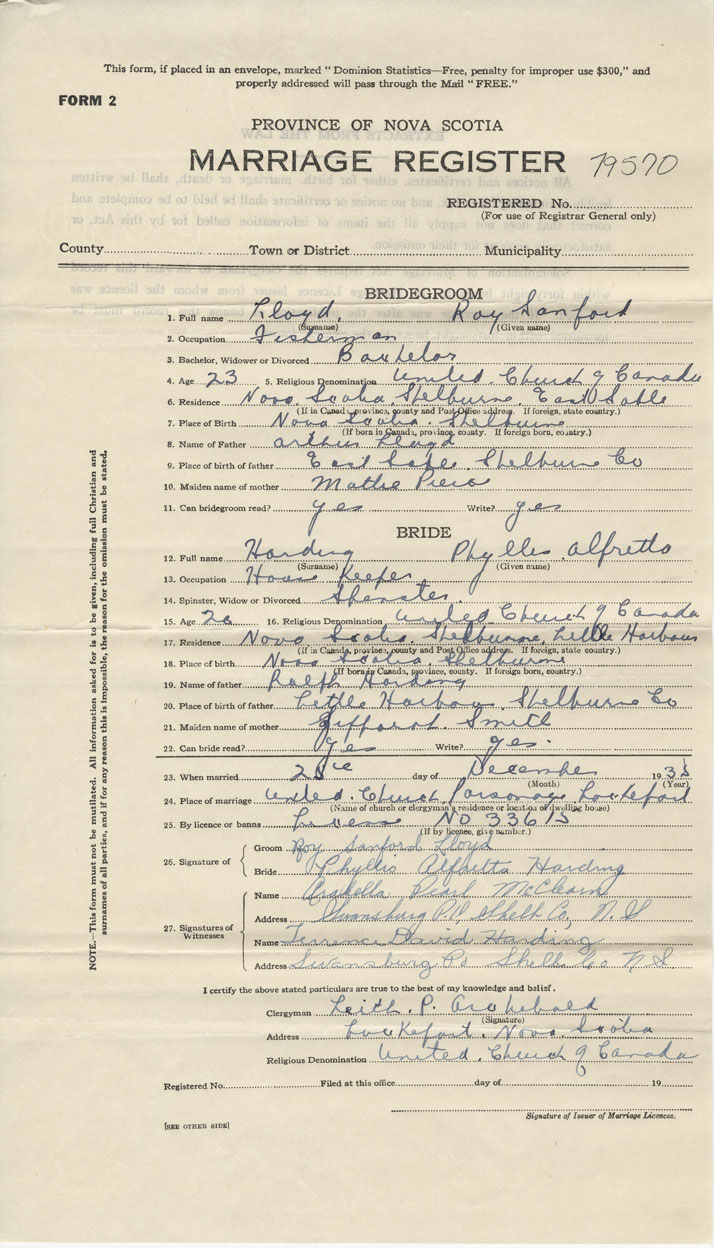 This form, if placed in an envelope, marked "Dominion Statistics—Free, penalty for improper use $300," and
properly addressed will pass through the Mail "FREE."
FORM 2
PROVINCE OF NOVA SCOTIA
MARRIAGE REGISTER 79570
REGISTERED No.
(For use of Registrar General only)
County Town or District Municipality
BRIDEGROOM
1. Full name Lloyd, Roy Sanford
(Surname) (Given name)
2. Occupation Fisherman
3. Bachelor, Widower or Divorced Bachelor
4. Age 23 5. Religious Denomination United Church of Canada
6. Residence Nova Scotia Shelburne, East Sable
(If in Canada, province, county and Post Office address. If foreign, state country.)
7. Place of Birth Nova Scotia. Shelburne
(If born in Canada, province, county. If foreign born, country.)
8. Name of Father Arthur Lloyd
9. Place of birth of father East Sable, Shelburne Co
10. Maiden name of mother Mattie
11. Can bridegroom read? yes Write? yes
BRIDE
12. Full name Harding Phyllis Alfretta
(Surname) (Given name)
13. Occupation House Keeper
14. Spinster, Widow or Divorced Spinster
15. Age 16. Religious Denomination United Church of Canada
17. Residence Nova Scotia, Shelburne, Little Harbour
(If in Canada, province, county and Post Office address. If foreign, state country.)
18. Place of birth Nova Scotia. Shelburne
(If born in Canada, province, county. If foreign born, country.)
19. Name of father Ralph Harding
20. Place of birth of father Little Harbour, Shelburne Co
21. Maiden name of mother Smith
22. Can bride read? yes Write? yes.
23. When married day of December 1935
(Month) (Year)
24. Place of marriage United Church Parsonage Lockeport
(Name of church or clergyman's residence or location of dwelling house)
25. By licence or banns License No 33615
(If by licence, give number.)
26. Signature of
Groom Roy Sanford Lloyd
Bride Phyllis Alfretta Harding
27. Signatures of Witnesses
Name Arabella Pearl McClearn
Address Swansburg P.O. Shelb Co, N.S
Name Terrence David Harding
Address Swansburg Po Shelb. Co N S
I certify the above stated particulars are true to the best of my knowledge and belief.
Clergyman Leith. P. Archibald
(Signature)
Address Lockeport. Nova Scotia
Religious Denomination United Church of Canada
Registered No. Filed at this office day of 19
Signature of Issuer of Marriage Licences.
[SEE OTHER SIDE]
NOTE.—This form must not be mutilated. All information asked for is to be given, including full Christian and
surnames of all parties, and if for any reason this is impossible, the reason for the omission must be stated.